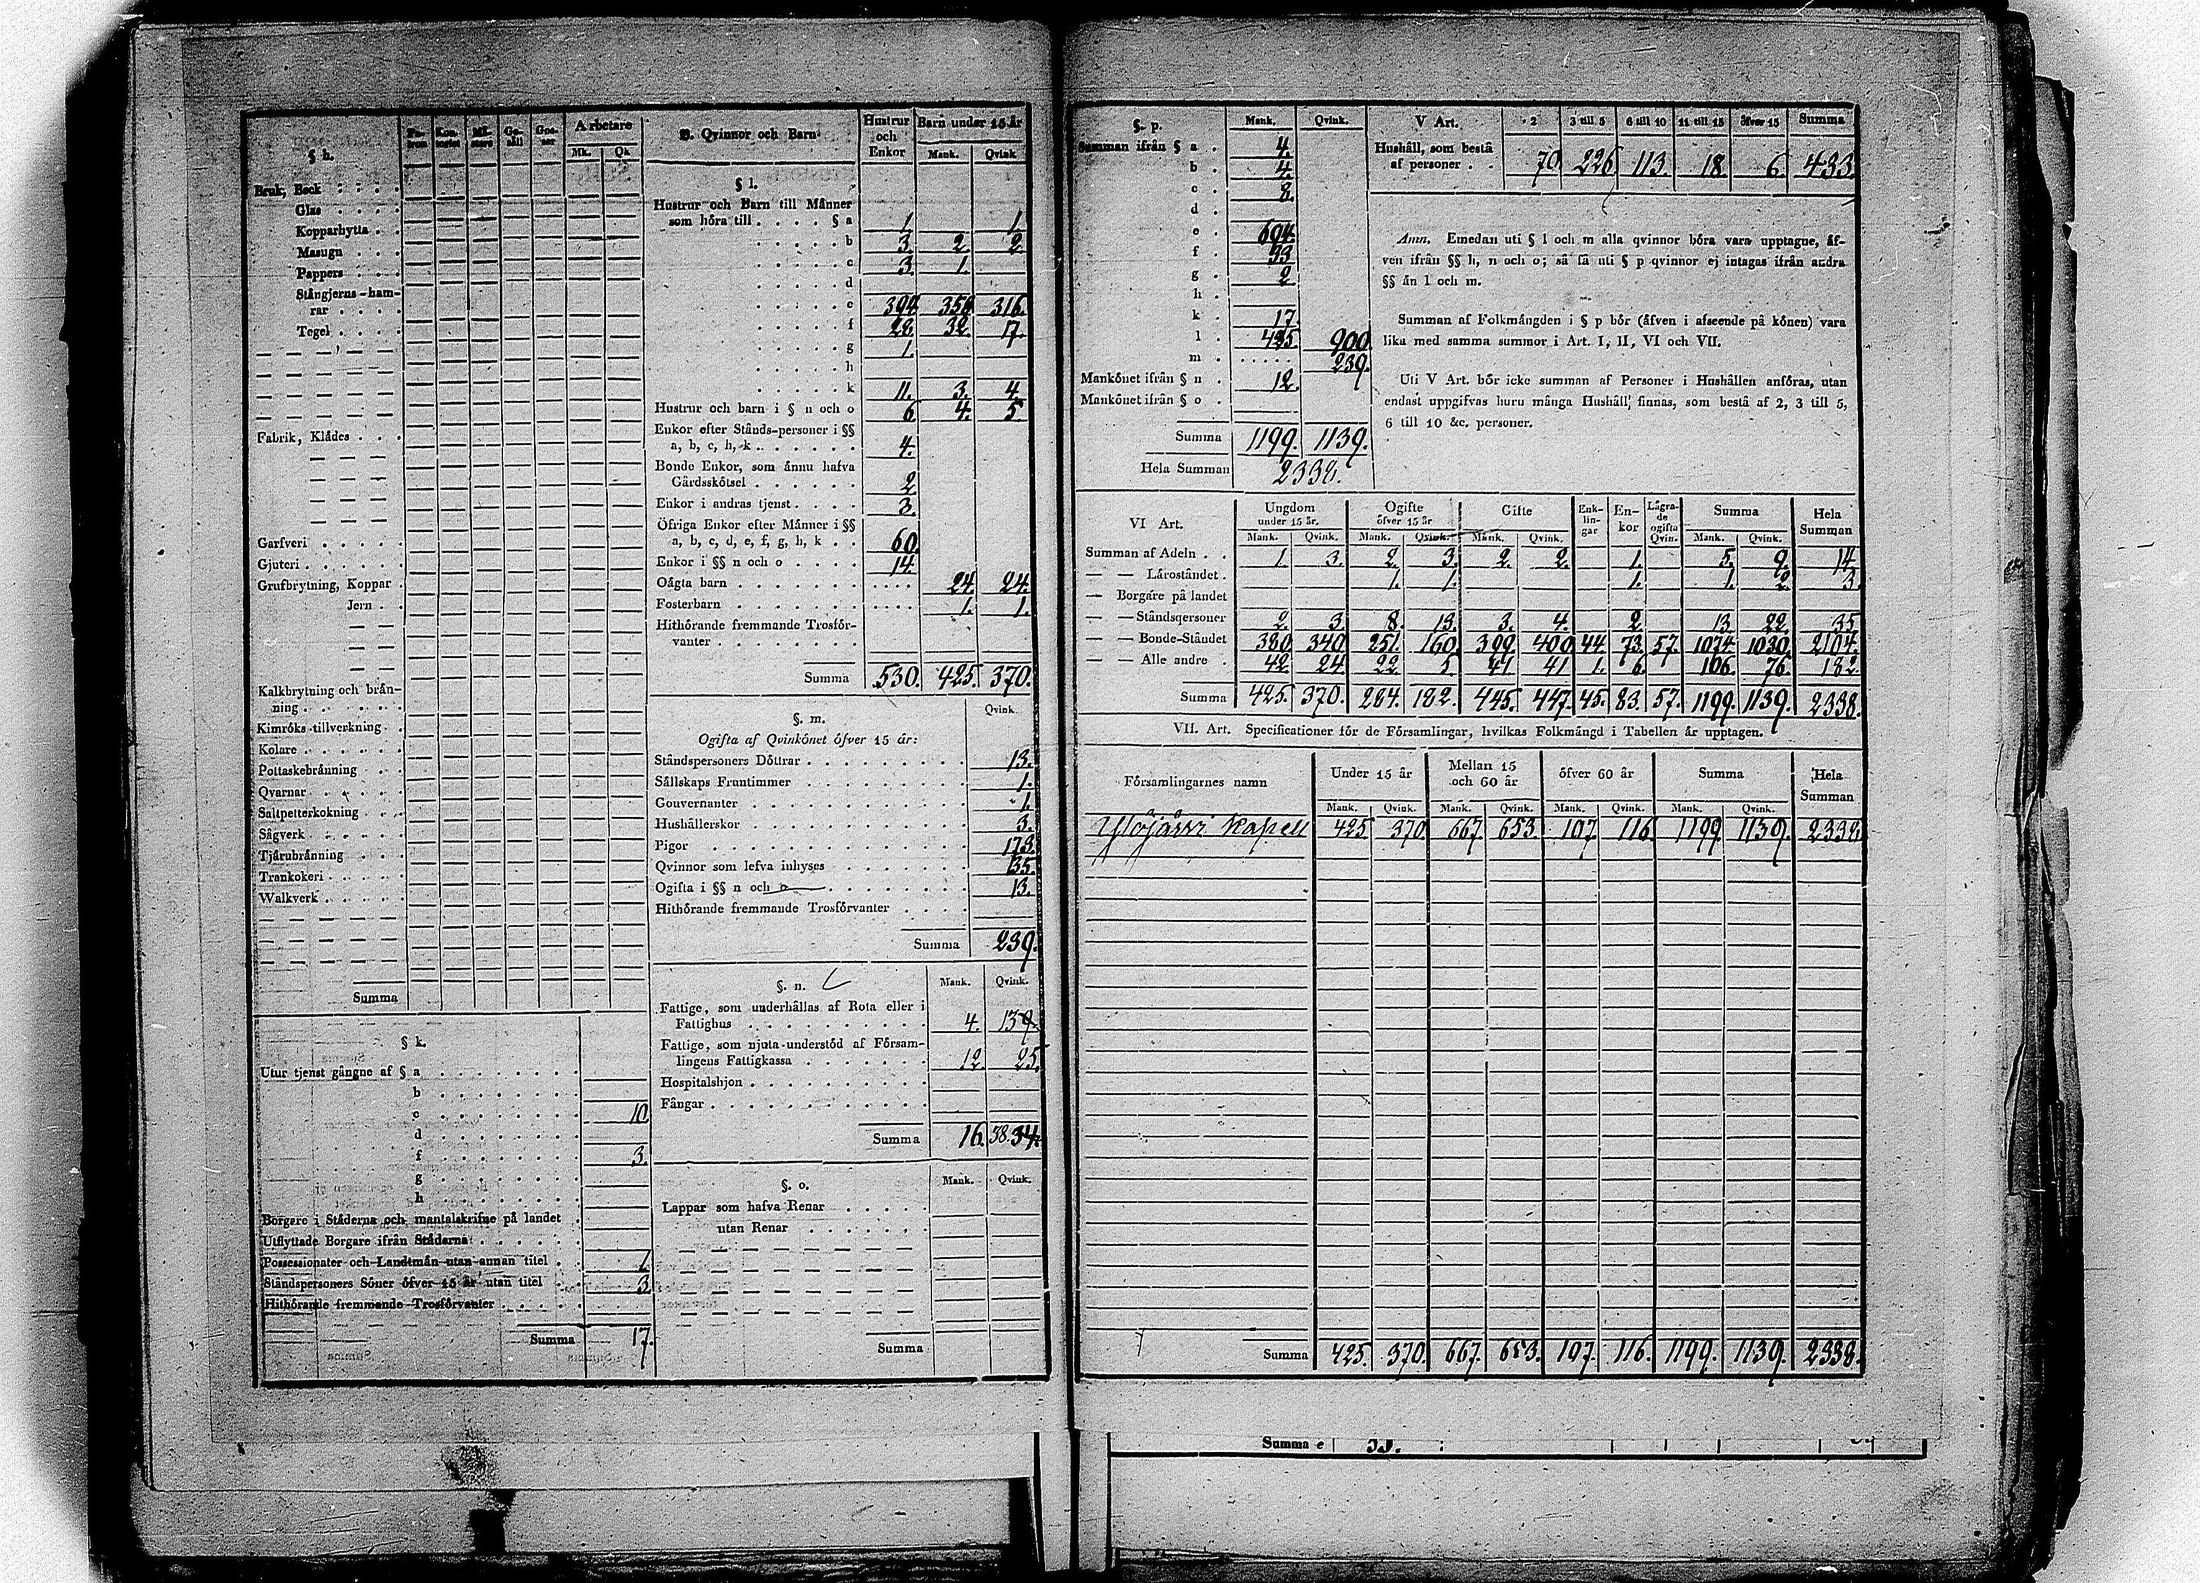 § h.
Arbetare
Mk. Qk.
Bruk, Beck
Glas
Kopparhytta
Masugn
Pappers
Stångjerns-ham-
rar
Tegel
Fabrik, Klådes
Garfveri
Gjuteri
Grufbrytning, Koppar
Jern
Kalkbrytning och brån-
ning
Kimröks-tillverkning
Kolare
Pottaskebränning
Qvarnar
Saltpetterkokning
Sågverk
Tjårubränning
Trankokeri
Walkverk
Summa
§ k.
Utur tjenst gångne af § a
b
c 10.
d
f 3.
g
h
Borgare i Ståderna och mantalskrifne på landet
Utflyttade Borgare ifrån Ståderna
Possessionater och Landtmån utan annan titel 1
Ståndspersoners Söner öfver 15 år utan titel 3.
Hithörande fremmande Trosförvanter
Summa 17.
B. Qvinnor och Barn
Hustrur och Enkor
Barn under 15 år
Mank. Qvink
§ l.
Hustrur och Barn till Månner
som höra till § a 1. 1.
b 3. 2. 2
c 3. 1.
d
e 394. 358. 316.
f 28. 32. 17.
g 1.
h
k 11. 3. 4.
Hustrur och barn i § n och o 6 4. 5.
Enkor efter Stånds-personer i §§
a, b, c, h, k 4.
Bonde Enkor, som ånnu hafva
Gårdsskötsel 2
Enkor i andras tjenst 3.
Öfriga Enkor efter Månner i §§
a, b, c, d, e, f, g, h, k 60.
Enkor i §§ n och o 14.
Oågta barn 24. 24.
Fosterbarn 1. 1.
Hithörande fremmande Trosför-
vanter
Summa 530. 425. 370.
§. m.
Qvink.
Ogifta af Qvinkönet öfver 15 år:
Ståndspersoners Döttrar 13.
Sållskaps Fruntimmer 1.
Gouvernanter 1.
Hushållerskor 3.
Pigor 173.
Qvinnor som lefva inhyses 35.
Ogifta i §§ n och o 13.
Hithörande fremmande Trosförvanter
Summa 239.
§. n.
Mank. Qvink.
Fattige, som underhållas af Rota eller i
Fattighus 4. 13
Fattige, som njuta understöd af Försam-
lingens Fattigkassa 12. 25.
Hospitalshjon
Fångar
Summa 16. 38. 34.
§. o.
Mank. Qvink.
Lappar som hafva Renar
utan Renar
Summa
§. p.
Mank. Qvink.
Summan ifrån § a 4.
b 4.
c 8.
d
e 694.
f 33.
g 2
h
k 17.
l 425. 900.
m 239.
Mankönet ifrån § n 12.
Mankönet ifrån § o
Summa 1199. 1139.
Hela Summan 2338.
V Art. 2 3 till 5 6 till 10 11 till 15 öfver 15 Summa
Hushåll, som bestå
af personer 70. 226. 113. 18. 6. 433.
Anm. Emedan uti § l och m alla qvinnor böra vara upptagne, åf-
ven ifrån §§ h, n och o; så få uti § p qvinnor ej intagas ifrån andra
§§ ån l och m.
Summan af Folkmångden i § p bör (åfven i afseende på könen) vara
lika med samma summor i Art. I, II, VI och VII.
Uti V Art. bör icke summan af Personer i Hushållen anföras, utan
endast uppgifvas huru många Hushåll finnas, som bestå af 2, 3 till 5,
6 till 10 &c. personer.
VI Art.
Ungdom under 15 år. Ogifte öfver 15 år Gifte Enk-lin-gar En-kor Lågra-de ogifta Qvin. Summa Hela Summan
Mank. Qvink. Mank. Qvink. Mank. Qvink. Mank. Qvink.
Summan af Adeln 1. 3. 2. 3. 2. 2. 1. 5. 9. 14.
— — Låroståndet 1. 1. 1. 1. 2. 3
— Borgare på landet
— — Ståndspersoner 2. 3. 8. 13. 3. 4. 2. 13. 22. 35
— — Bonde-Ståndet 380. 340. 251. 160. 399. 400. 44. 73. 57. 1074. 1030. 2104.
— — Alle andre 42. 24. 22. 5. 41. 41. 1. 6. 106. 76. 182.
Summa 425. 370. 284. 182. 445. 447. 45. 83. 57. 1199. 1139. 2338.
VII. Art. Specificationer för de Församlingar, hvilkas Folkmångd i Tabellen år upptagen.
Församlingarnes namn Under 15 år Mellan 15 och 60 år öfver 60 år Summa Hela Summan
Mank. Qvink. Mank. Qvink. Mank. Qvink. Mank. Qvink.
Ylöjärvi Kapell 425 370 667. 653. 107. 116 1199. 1139. 2338
Summa 425. 370. 667. 653. 107. 116. 1199. 1139. 2338.
Summa e